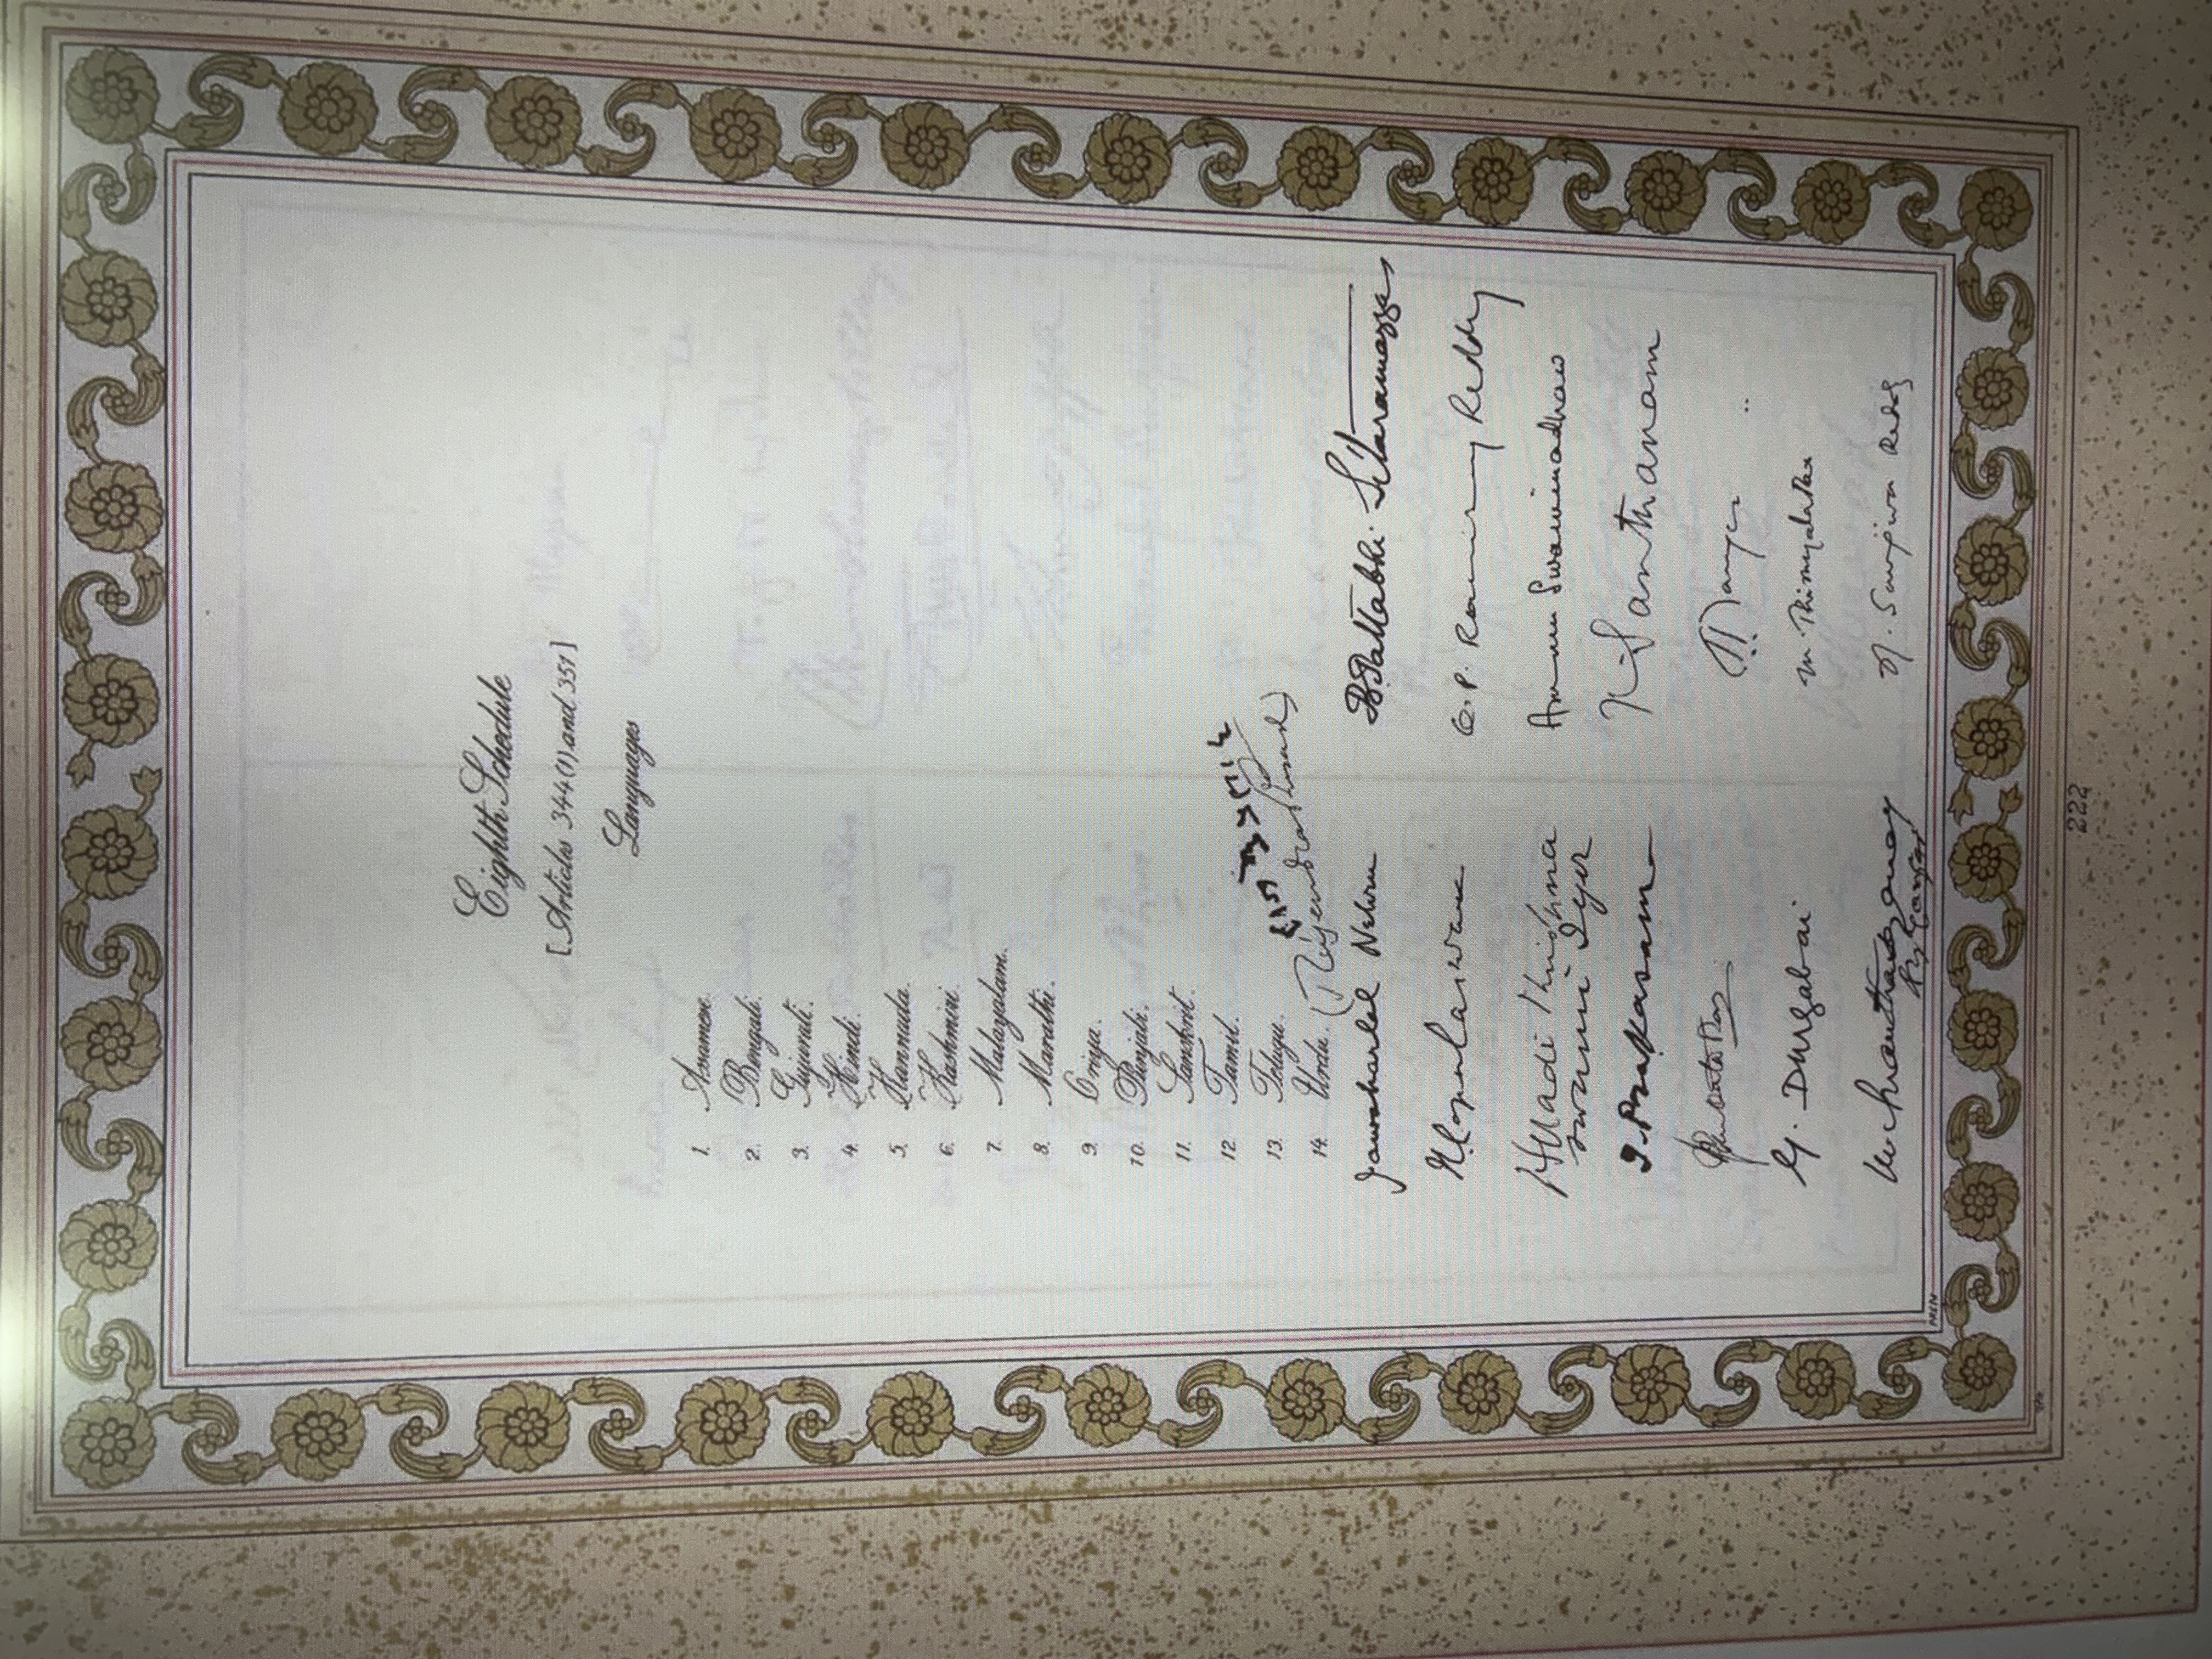 Eighth Schedule
[Articles 344(1) and 351]
Languages
1. Assamese.
2. Bengali.
3. Gujarati.
4. Hindi.
5. Kannada.
6. Kashmiri.
7. Malayalam.
8. Marathi.
9. Oriya.
10. Punjabi.
11. Sanskrit.
12 Tamil.
13. Telugu.
14. Urdu.
(Rajendra Prasad)
Jawaharlal Nehru
B. Pattabhi Sitaramayya
O. P. Ramaswamy Reddy
Alladi Krishna
swami Iyer
Ammu Swaminadhan
T. Prakasam
K Santhanam
G. Durgabai
M. Thirumala Rao
N. Sanjiva Reddy
222